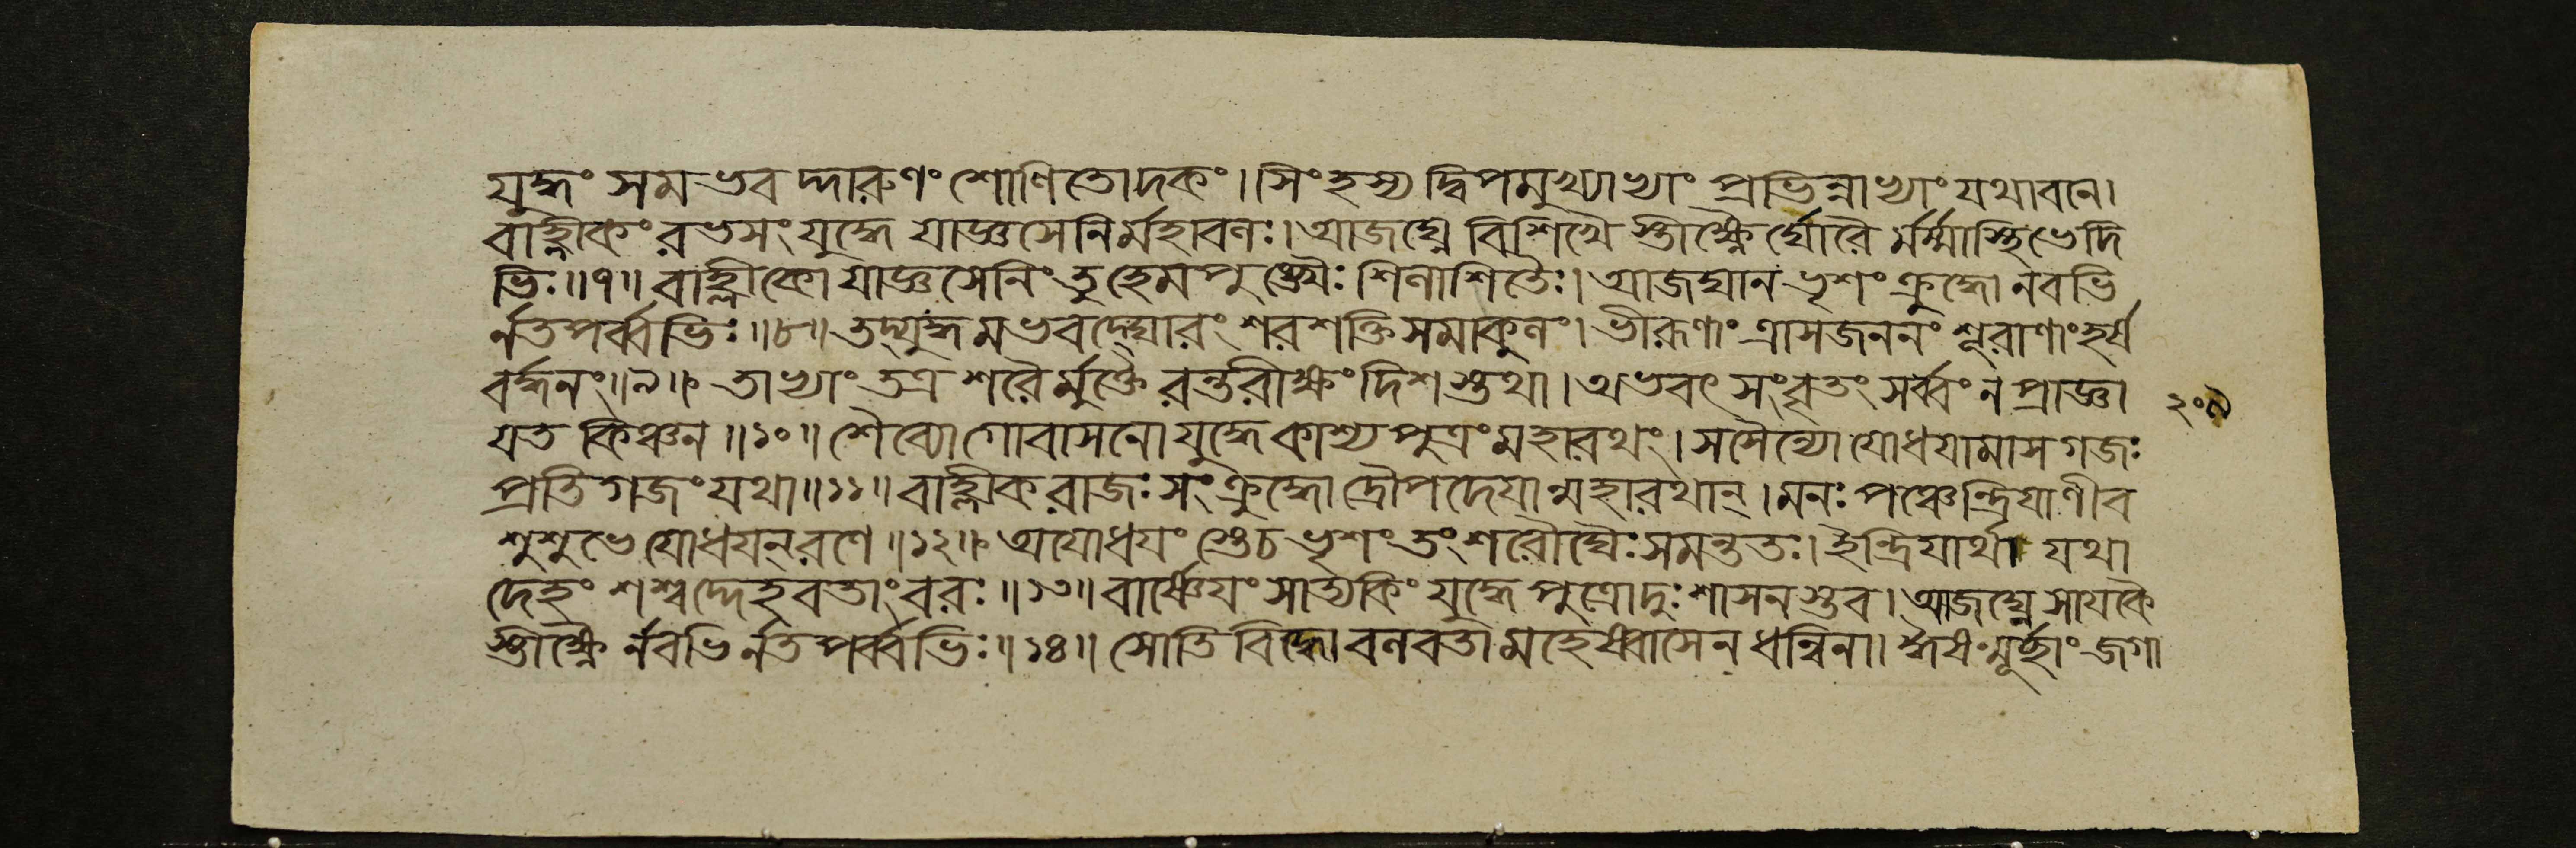 যুদ্ধং সমভবদ্দারুণং শোণিতোদকং। সিংহস্য দ্বিপমুখ্যাভ্যাং প্রভিন্নাভ্যাং যথাবনে।
বাহ্লীকং রভসং যুদ্ধে যাজ্ঞসেনির্ম্মহাবলঃ। আজঘ্নে বিশিখৈ স্তীক্ষ্ণৈর্ঘোরৈ র্ম্মর্ম্মাস্থিভেদি
ভিঃ॥৭॥ বাহ্লীকো যাজ্ঞসেনিং তু হেমপুঙ্খৈঃ শিলাশিতৈঃ। আজঘান ভৃশং ক্রুদ্ধো নবভি
র্নতপর্ব্বভিঃ॥৮॥ তদ্যুদ্ধমভবদ্ঘোরং শরশক্তিসমাকুলং। ভীরূণাং ত্রাসজননং শূরাণাং হর্ষ
বর্দ্ধনং॥৯॥ তাভ্যাং তত্র শরৈর্মুক্তৈ রন্তরীক্ষং দিশস্তথা। অভবৎ সংবৃতং সর্ব্বং ন প্রাজ্ঞা
২০৯
যত কিঞ্চন॥১০॥ শৈব্যো গোবাসনো যুদ্ধে কাশ্যপুত্রং মহারথং। সসৈন্যো যোধযামাস গজঃ
প্রতিগজং যথা॥১১॥ বাহ্লীকরাজঃ সংক্রুদ্ধো দ্রৌপদেযান্মহারথান্। মনঃ পঞ্চেন্দ্রিযাণীব
শুশুভে যোধযন্ রণে॥১২॥ অযোধযং স্তে চ ভৃশং তং শরৌঘৈঃ সমন্ততঃ। ইন্দ্রিযার্থা যথা
দেহং শশ্বদ্দেহবতাং বরঃ॥১৩॥ বার্ষ্ণেযং সাত্যকিং যুদ্ধে পুত্রো দুঃশাসনস্তব। আজঘ্নে সাযকৈ
স্তীক্ষ্ণৈ র্নবভির্নতপর্ব্বভিঃ॥১৪॥ সোতিবিদ্ধো বলবতা মহেষ্বাসেন ধন্বিনা। ঈষন্মূর্চ্ছাং জগা